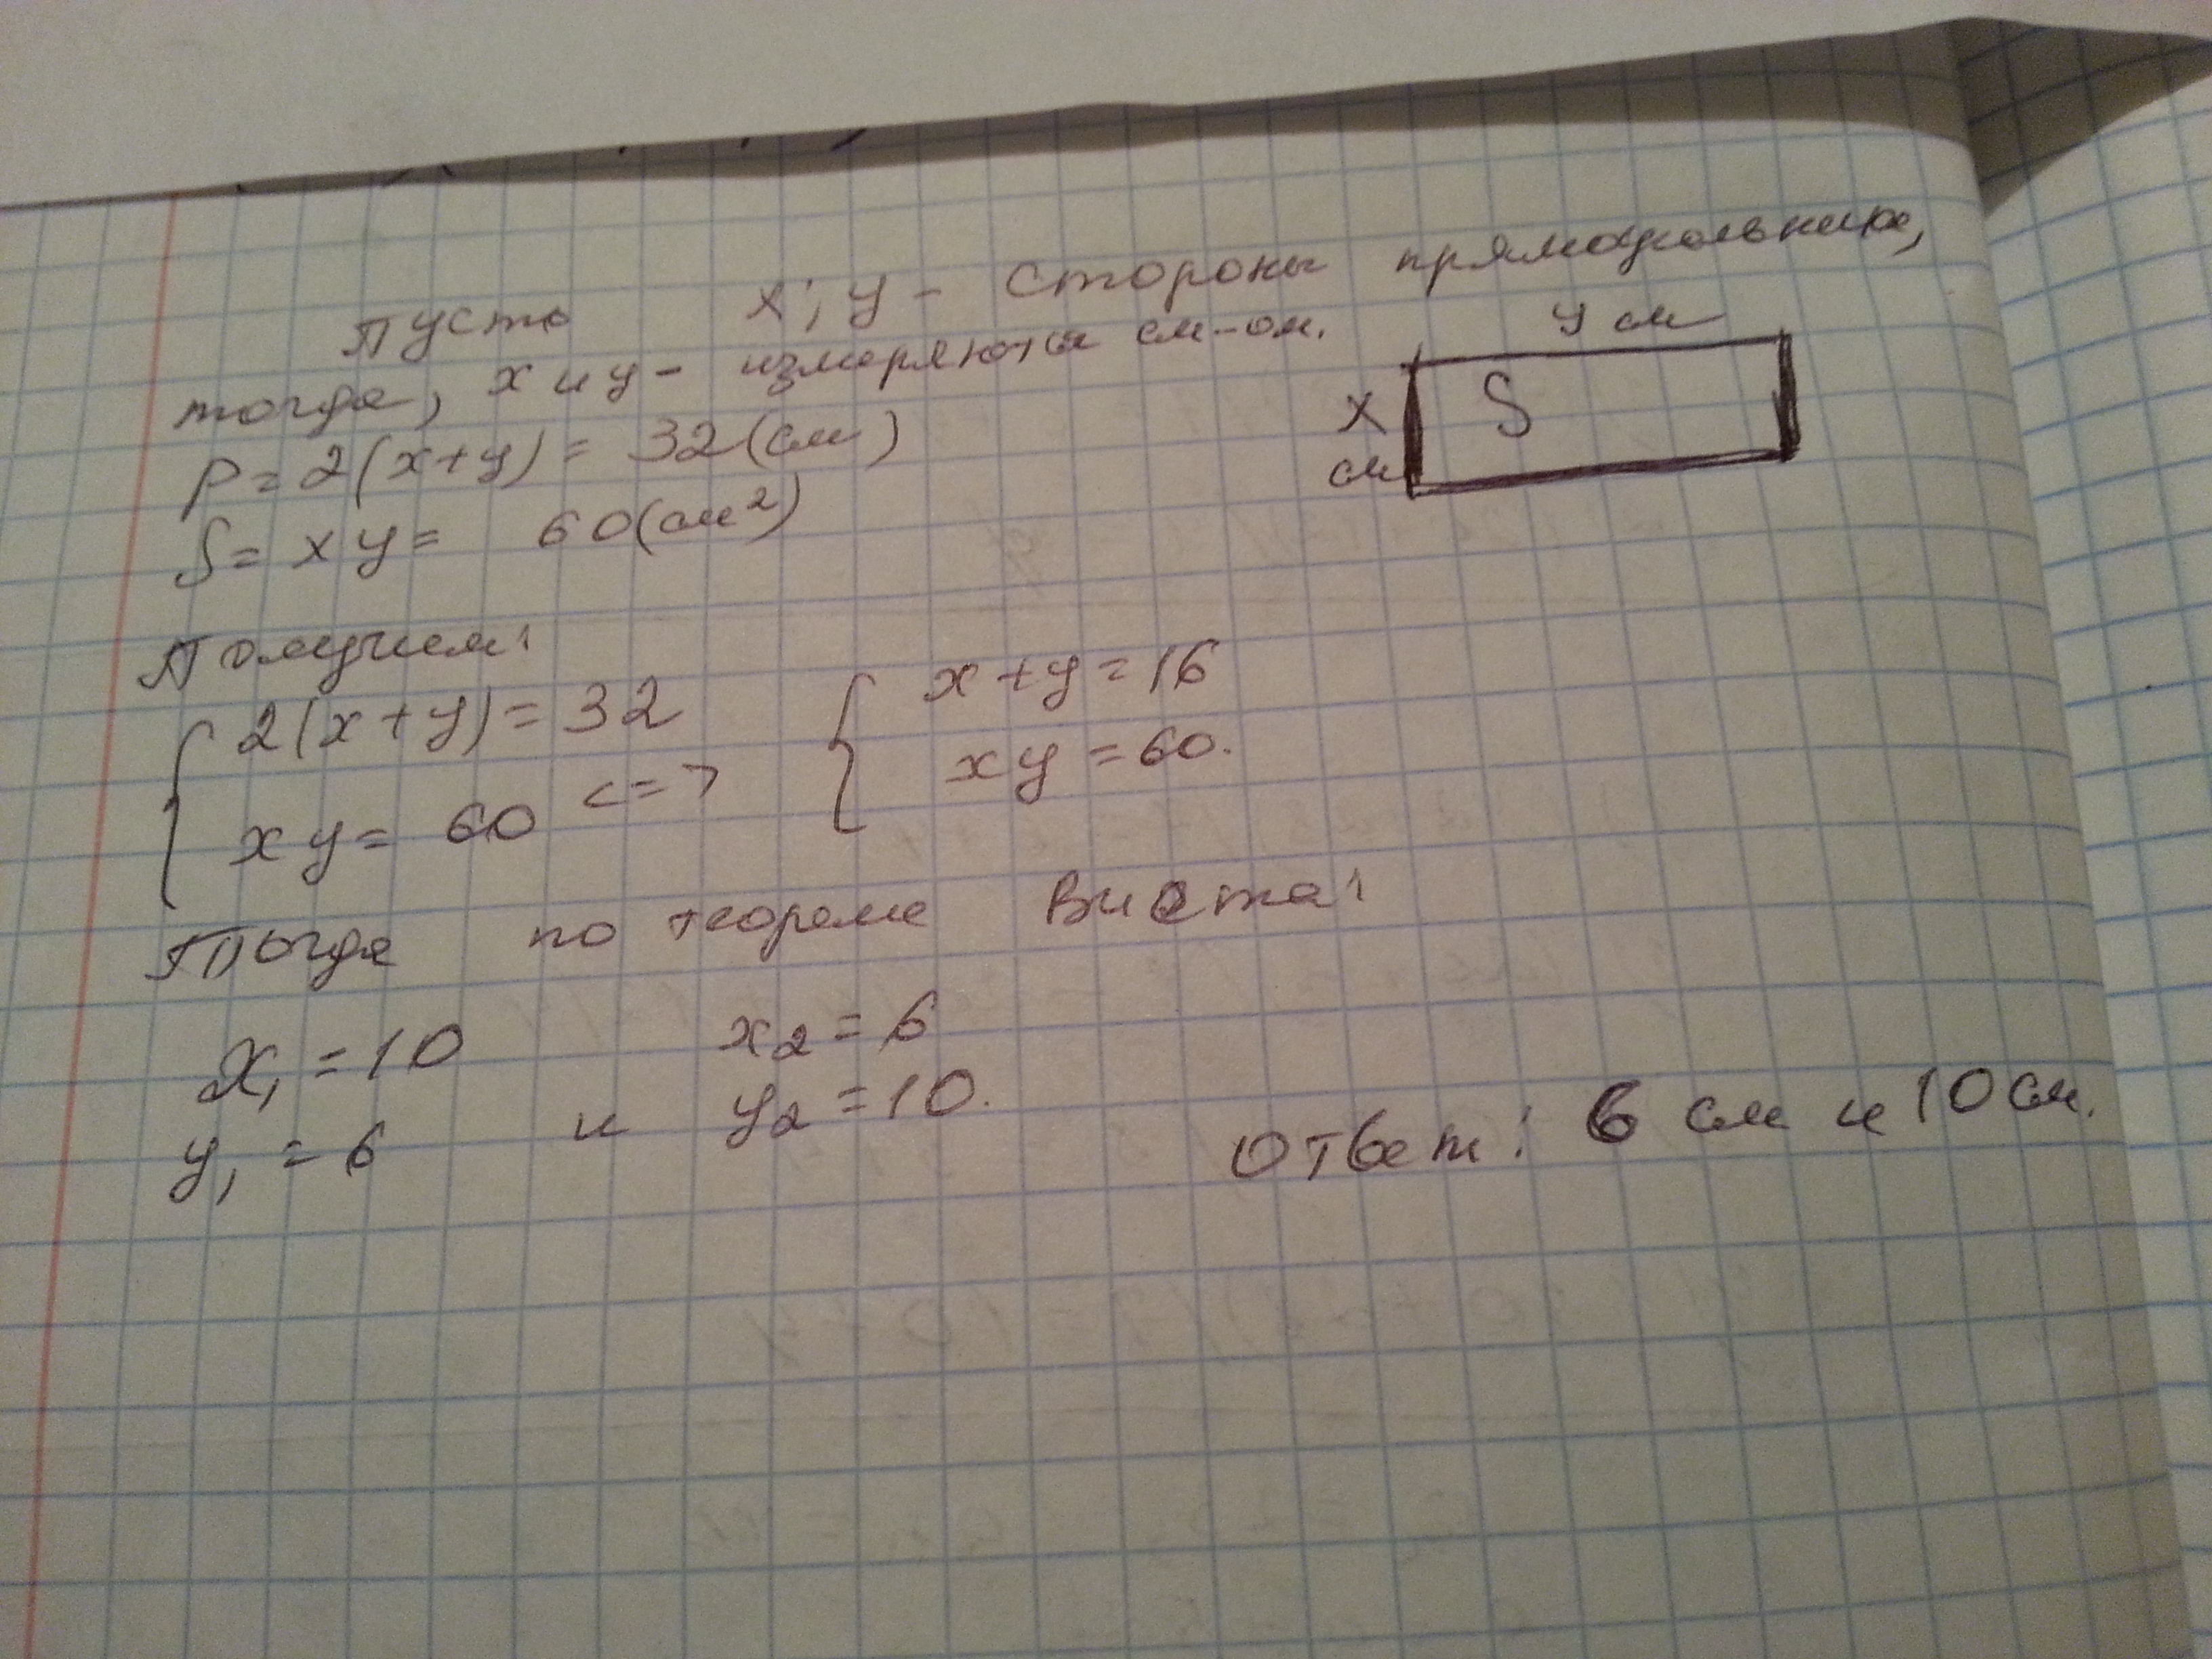 Пусть x; y - стороны прямоугольника,
тогда, x и y - измеряются см-ом.
P = 2(x+y) = 32(см)
S = xy = 60(см²)
y см
x
см
S
Получим:
{ 2(x+y) = 32
xy = 60 <=>
{ x+y = 16
xy = 60.
Тогда по теореме Виета:
x₁ = 10
y₁ = 6
и
x₂ = 6
y₂ = 10.
Ответ: 6 см и 10 см.